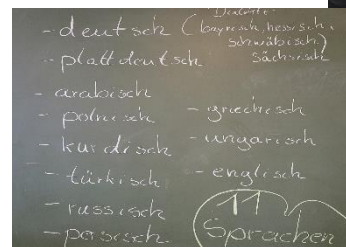 Dialekte:
- deutsch (bayrisch, hessisch,
schwäbisch,
sächsisch)
- plattdeutsch
- arabisch
- polnisch
- kurdisch
- türkisch
- russisch
- persisch
- griechisch
- ungarisch
- englisch
11
Sprachen